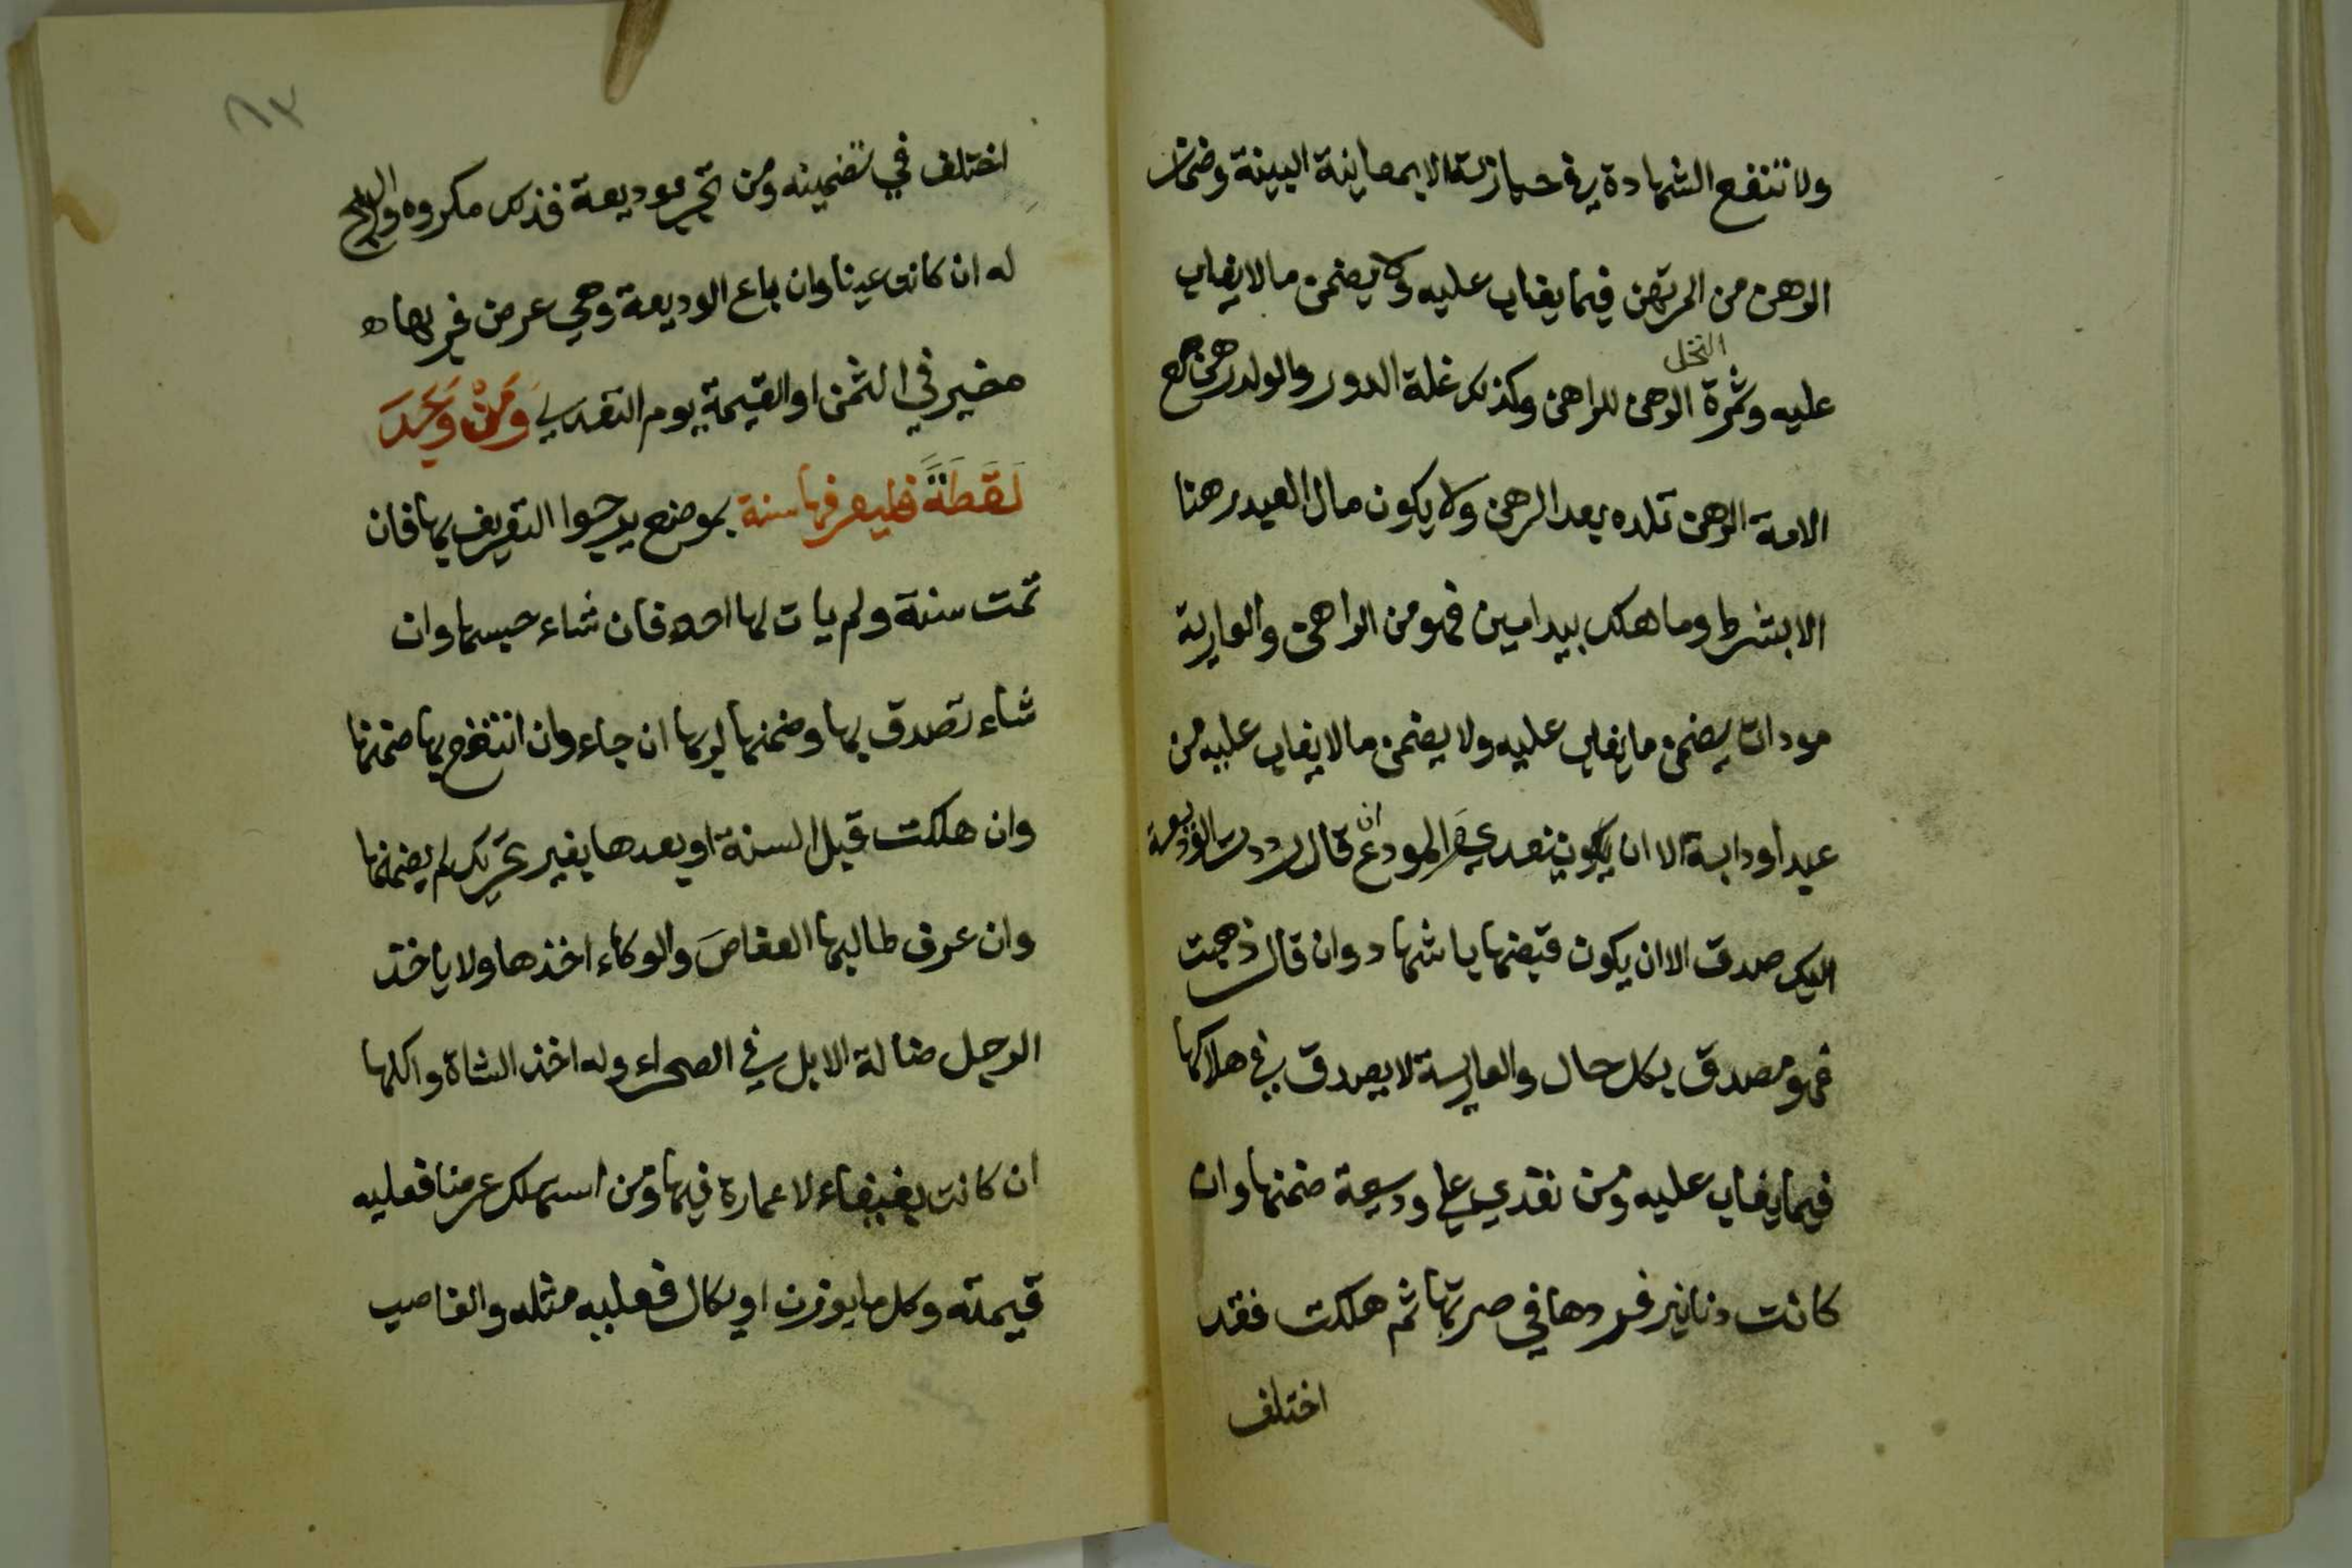 ولا تنفع الشهادة في حيازته الا بمعاينة البينة وضمان
الرهن من المرتهن فيما يغاب عليه ولا يضمن ما لا يغاب
عليه وثمرة النخل الرهن للراهن وكذلك غلة الدور والولد رهن مع
الامة الرهن تلده بعد الرهن ولا يكون مال العبد رهنا
الا بشرط وما هلك بيد امين فهو من الراهن والعارية
موداة يضمن ما يغاب عليه ولا يضمن ما لا يغاب عليه من
عبد او دابة الا ان يكون تعدي والمودع ان قال رددت الوديعة
اليك صدق الا ان يكون قبضها باشهاد وان قال ذهبت
فهو مصدق بكل حال والعارية لا يصدق في هلاكها
فيما يغاب عليه ومن تعدي علي وديعة ضمنها وان
كانت دنانير فردها في صرتها ثم هلكت فقد
اختلف
٦٣
اختلف في تضمينه ومن تجر بوديعة فذلك مكروه والربح
له ان كانت عينا وان باع الوديعة وهي عرض فربها
مخير في الثمن او القيمة يوم التعدي وَمَنْ وَجَدَ
لَقَطَةً فليعرفها سنة بموضع يرجوا التعريف بها فان
تمت سنة ولم يات لها احد فان شاء حبسها وان
شاء تصدق بها وضمنها لربها ان جاء وان انتفع بها ضمنها
وان هلكت قبل السنة او بعدها بغير تحريك لم يضمنها
وان عرف طالبها العفاصَ والوكاء اخذها ولا ياخذ
الرجل ضالة الابل في الصحراء وله اخذ الشاة واكلها
ان كانت بفيفاء لا عمارة فيها ومن استهلك عرضا فعليه
قيمته وكل ما يوزن او يكال فعليه مثله والغاصب